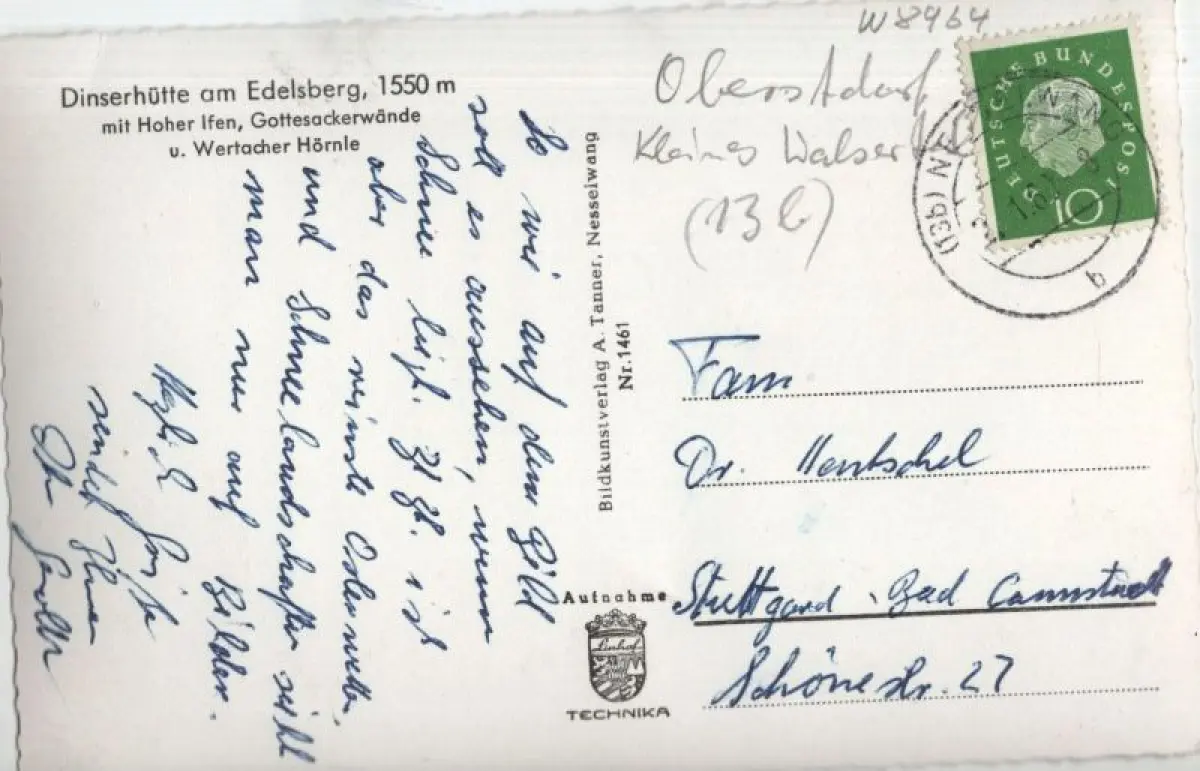 Dinserhütte am Edelsberg, 1550 m
mit Hoher Ifen, Gottesackerwände
u. Wertacher Hörnle
So wie auf dem Bild
soll es aussehen, wenn
Schnee liegt. Zt. ist
aber das reinste Osterwetter,
und Schneelandschaften sieht
man nur auf Bildern.
Herzlich Grüße
sendet Ihnen
Ihr
Bildkunstverlag A. Tanner, Nesselwang
Nr. 1461
W8964
Oberstdorf
Kleines Walser
(13b)
DEUTSCHE BUNDESPOST
10
(13b) NE WANG
b
Fam
Dr. Hentschel
Stuttgard, Bad Cannstadt
Schönestr. 27
Aufnahme
Linhof
TECHNIKA